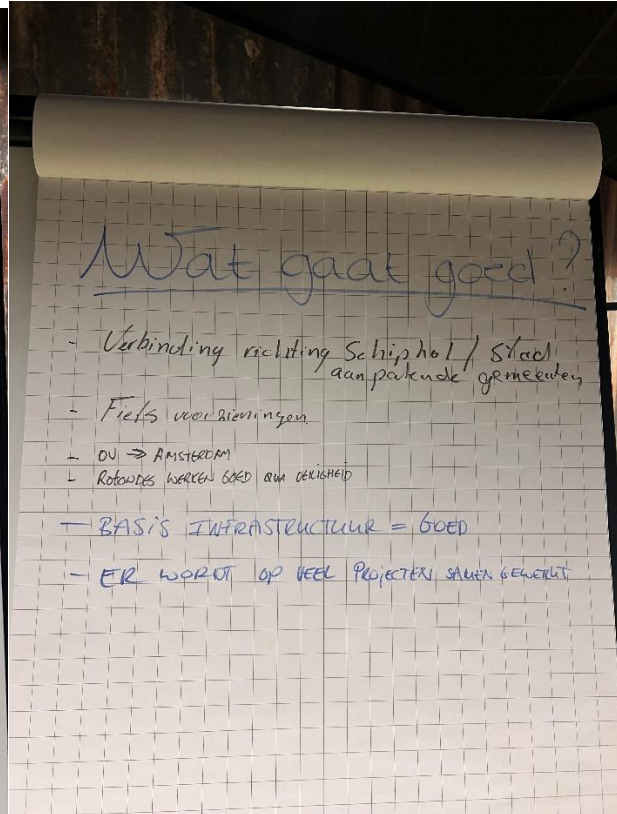 Wat gaat goed?
- Verbinding richting Schiphol / Stad
aanpakende gemeenten
- Fiets voorzieningen.
- OV => AMSTERDAM
- ROTONDES WERKEN GOED QUA VEILIGHEID
- BASIS INFRASTRUCTUUR = GOED
- ER WORDT OP VEEL PROJECTEN SAMEN GEWERKT